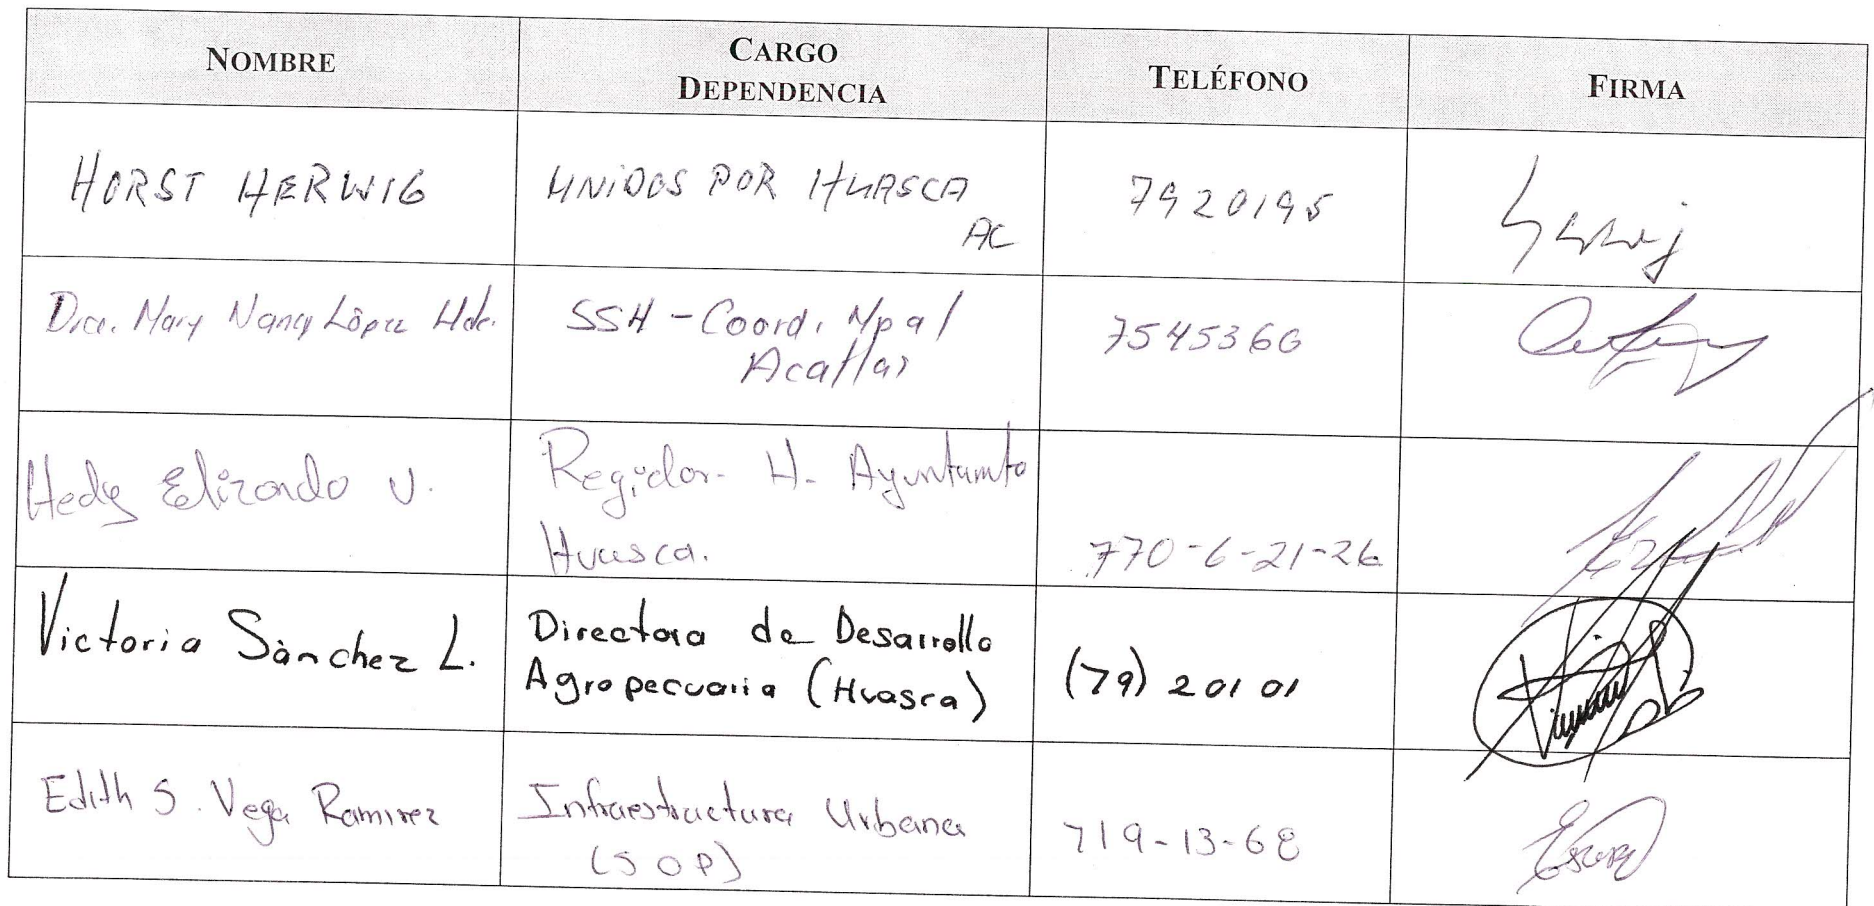 NOMBRE
CARGO
DEPENDENCIA
TELÉFONO
FIRMA
HORST HERWIG
UNIDOS POR HUASCA
AC
7920195
Dra. Mary Nancy López Hdz.
SSH - Coord. Mpal
Acatlan
7545360
Hedy Elizondo V.
Regidor H. Ayuntamto
Huasca.
770-6-21-26
Victoria Sánchez L.
Directora de Desarrollo
Agropecuaria (Huasca)
(79) 20101
Edith S. Vega Ramirez
Infraestructura Urbana
(SOP)
719-13-68